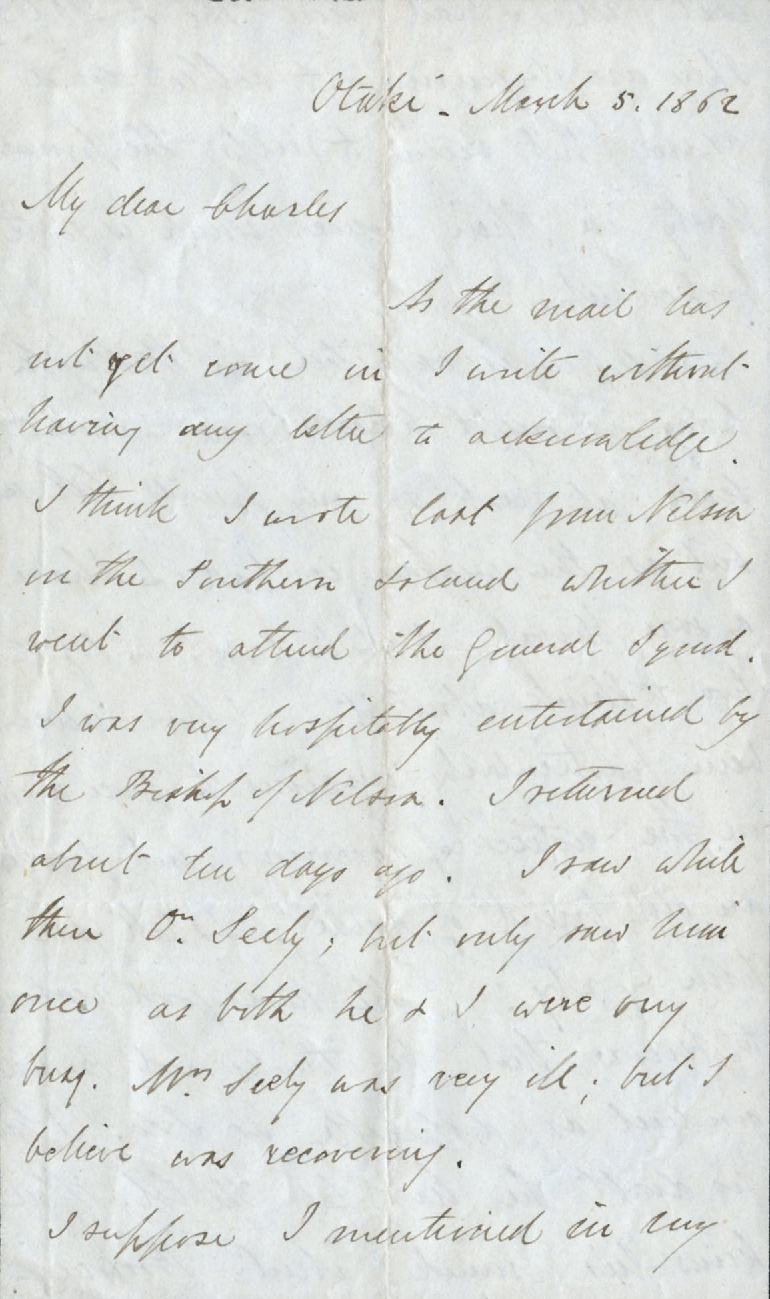 Otaki - March 5. 1862
My dear Charles
As the mail has
not yet come in I write without
having any letter to acknowledge.
I think I wrote last from Nelson
on the Southern Island whither I
went to attend the General Synod.
I was very hospitably entertained by
the Bishop of Nelson. I returned
about ten days ago. I saw while
there Seely; but only saw him
once as both he & I were very
busy. Mrs Seely was very ill; but I
believe was recovering.
I suppose I mentioned in my